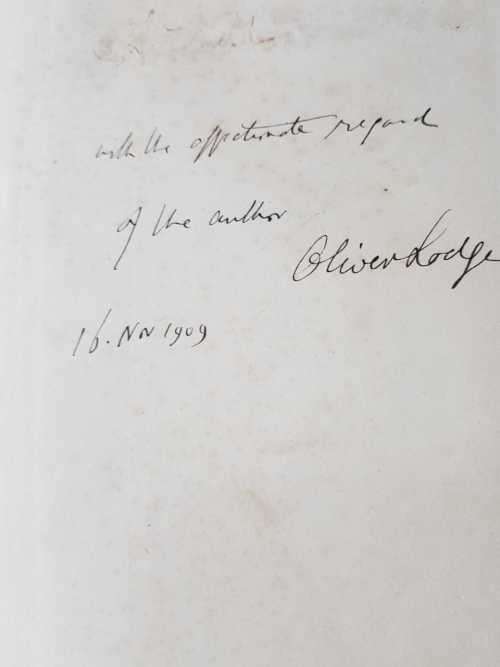 with the affectionate regard
of the author
Oliver Lodge
16. Nov 1909